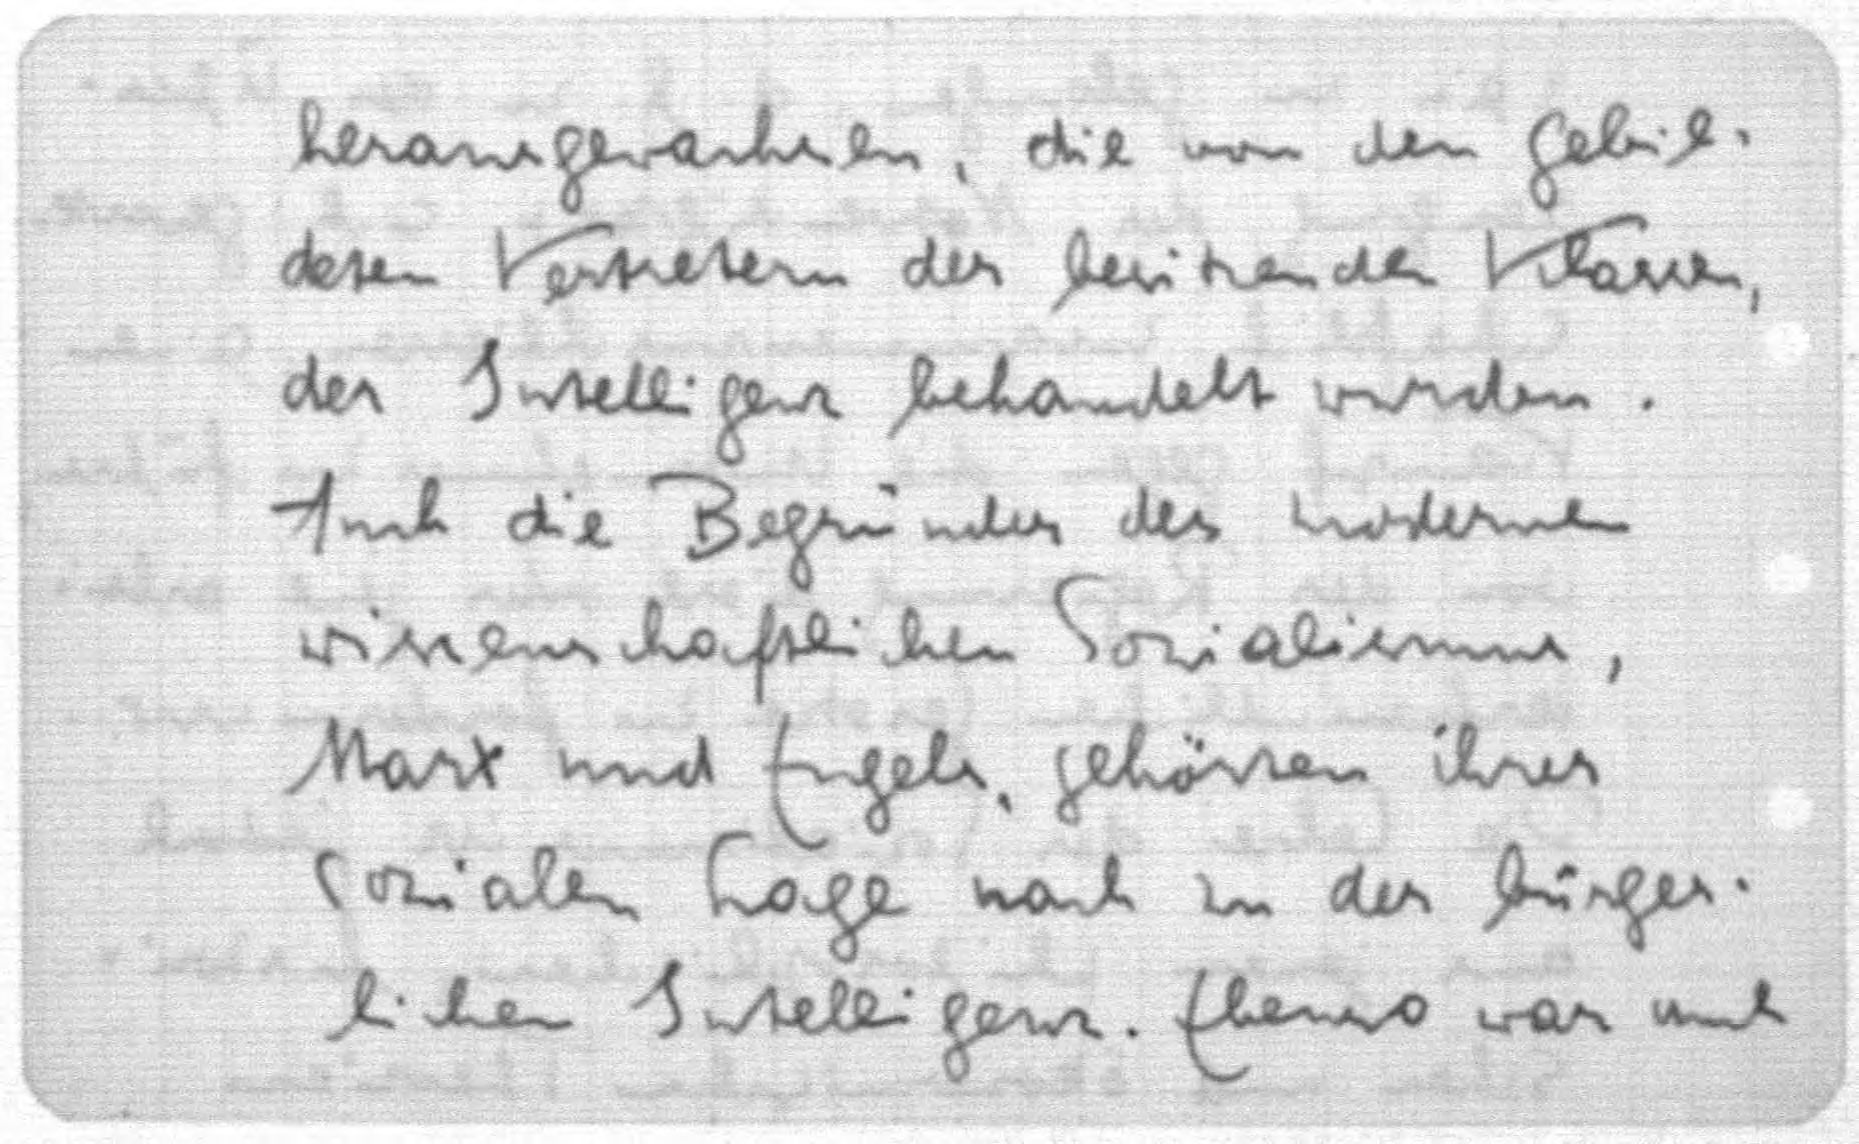 herausgewachsen, die von den gebil-
deten Vertretern der besitzenden Klassen,
der Intelligenz behandelt wurden.
Auch die Begründer des modernen
wissenschaftlichen Sozialismus,
Marx und Engels, gehörten ihrer
sozialen Lage nach zu der bürger-
lichen Intelligenz. Ebenso war auch